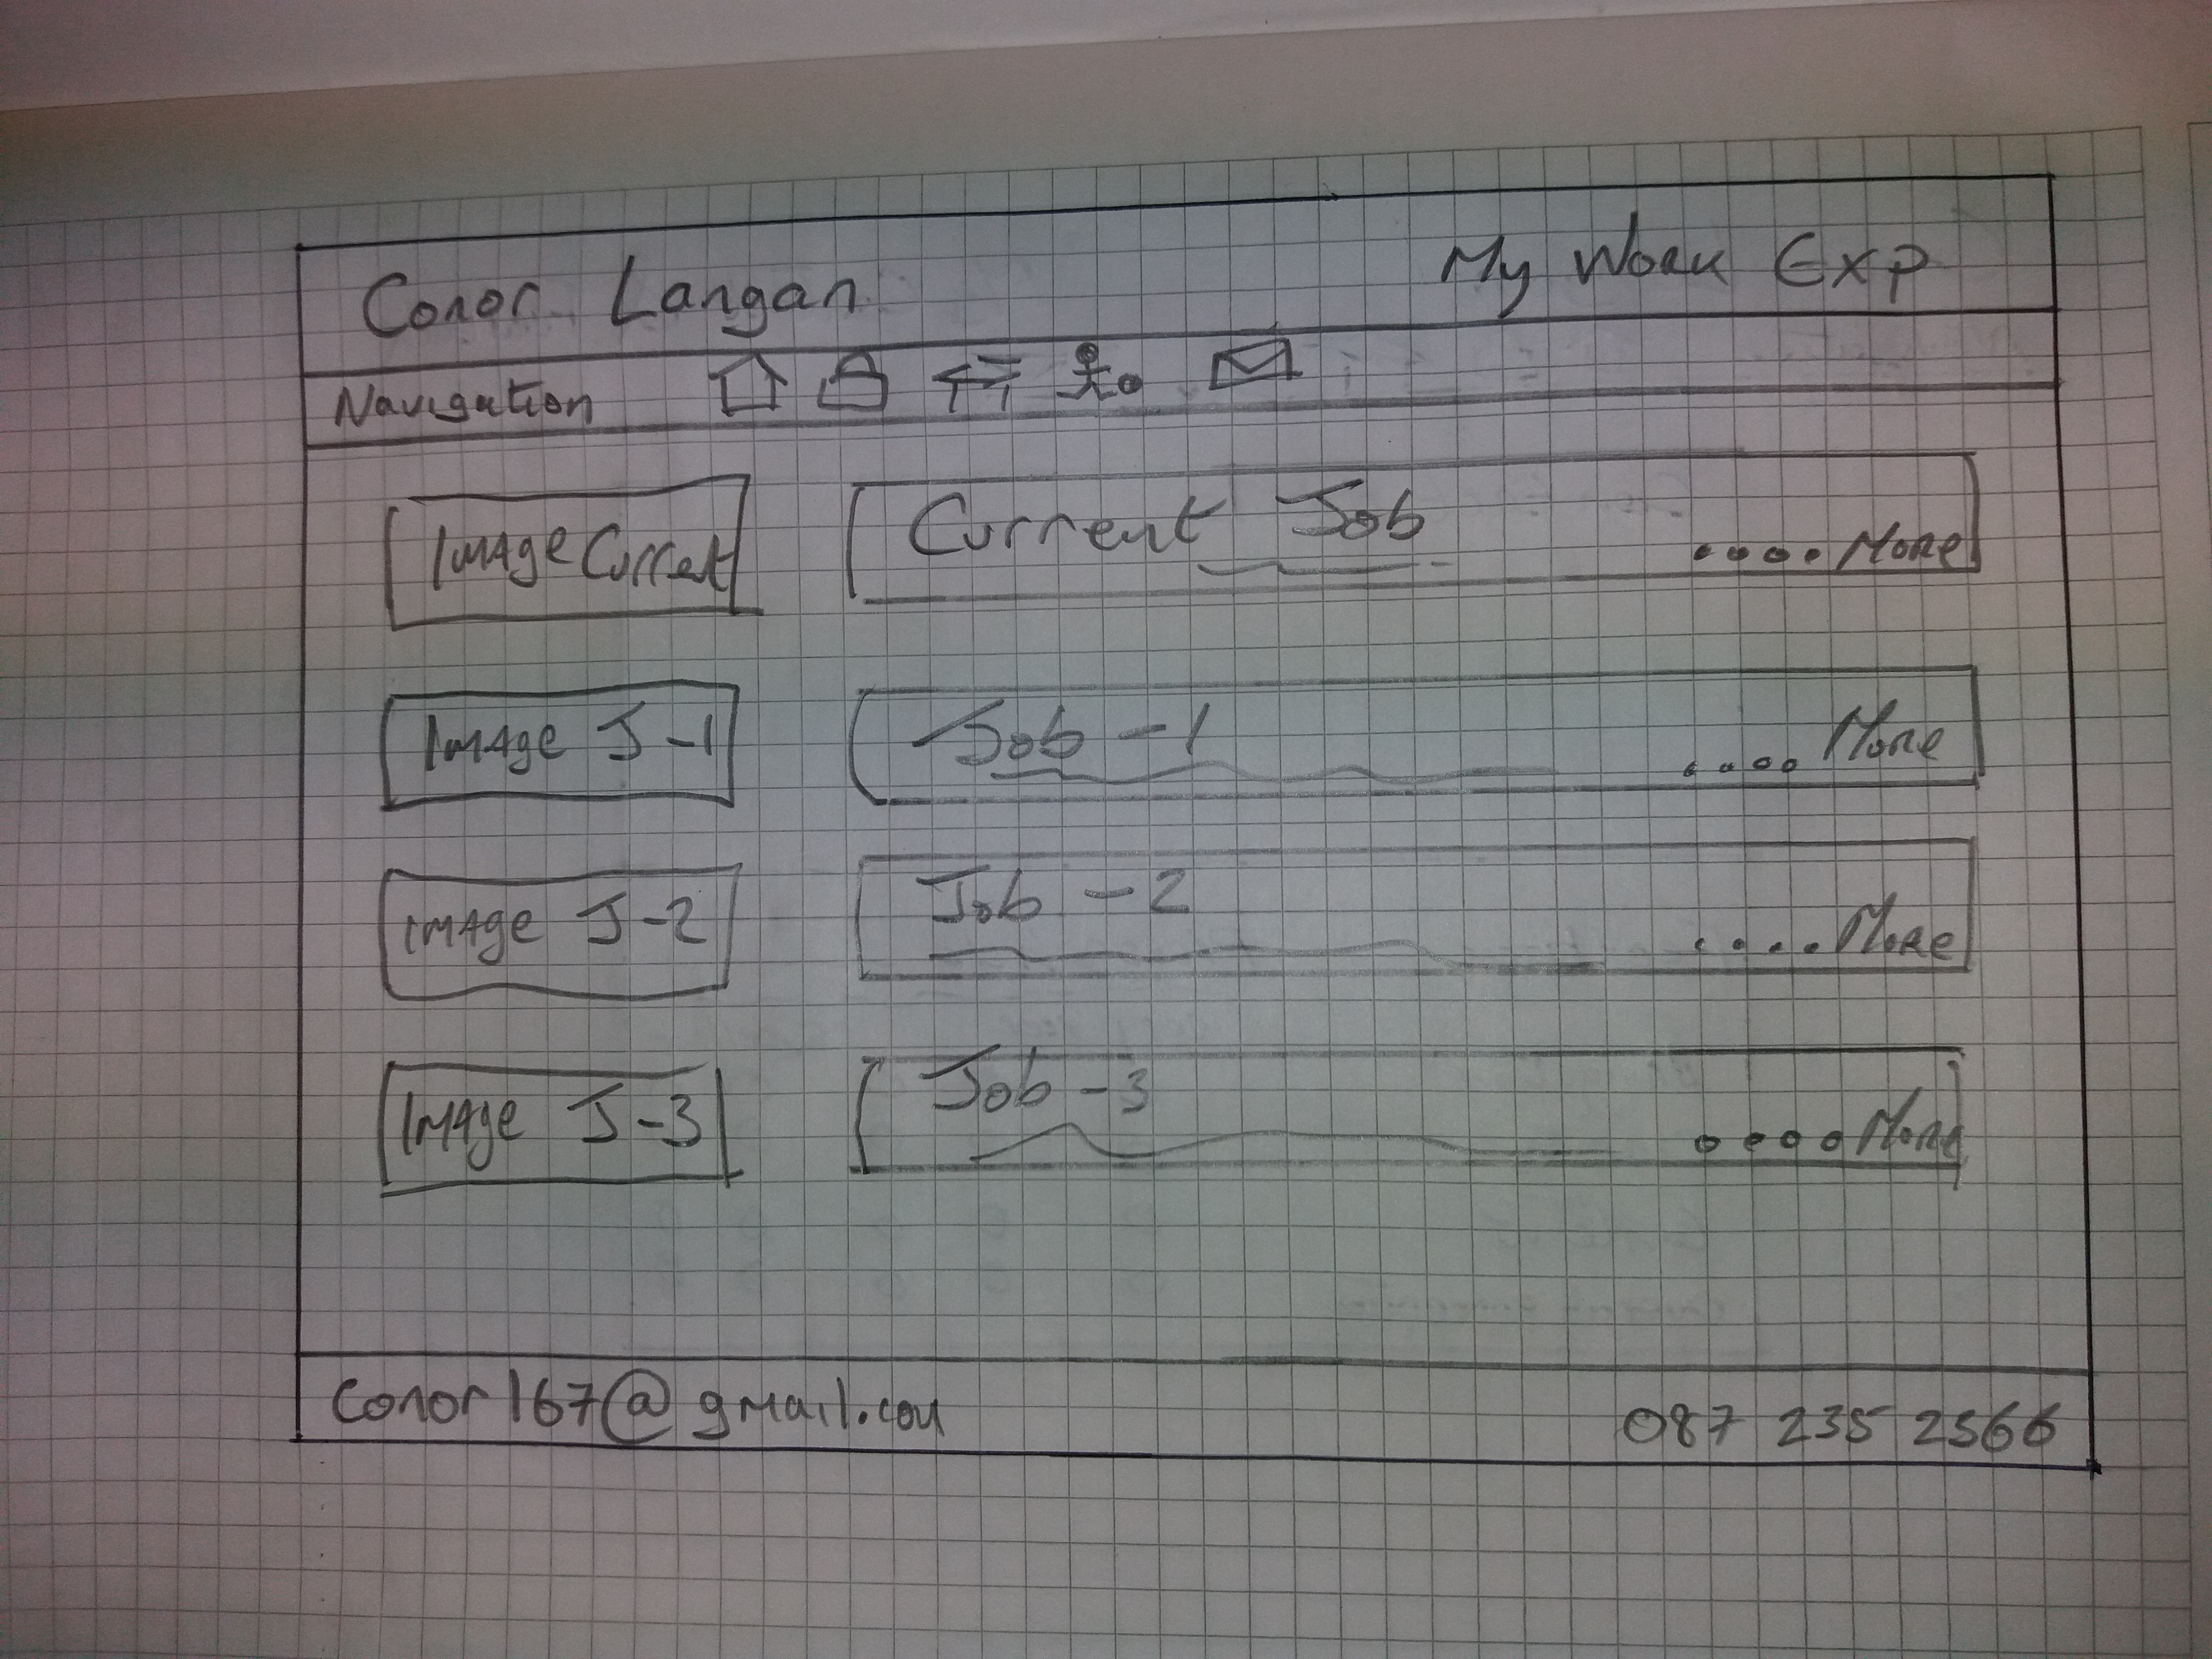 Conor Langan My Work Exp
Navigation
Image Current Current Job .... More
Image J-1 Job -1 .... More
Image J-2 Job -2 .... More
Image J-3 Job -3 .... More
Conor167@gmail.com 087 235 2566